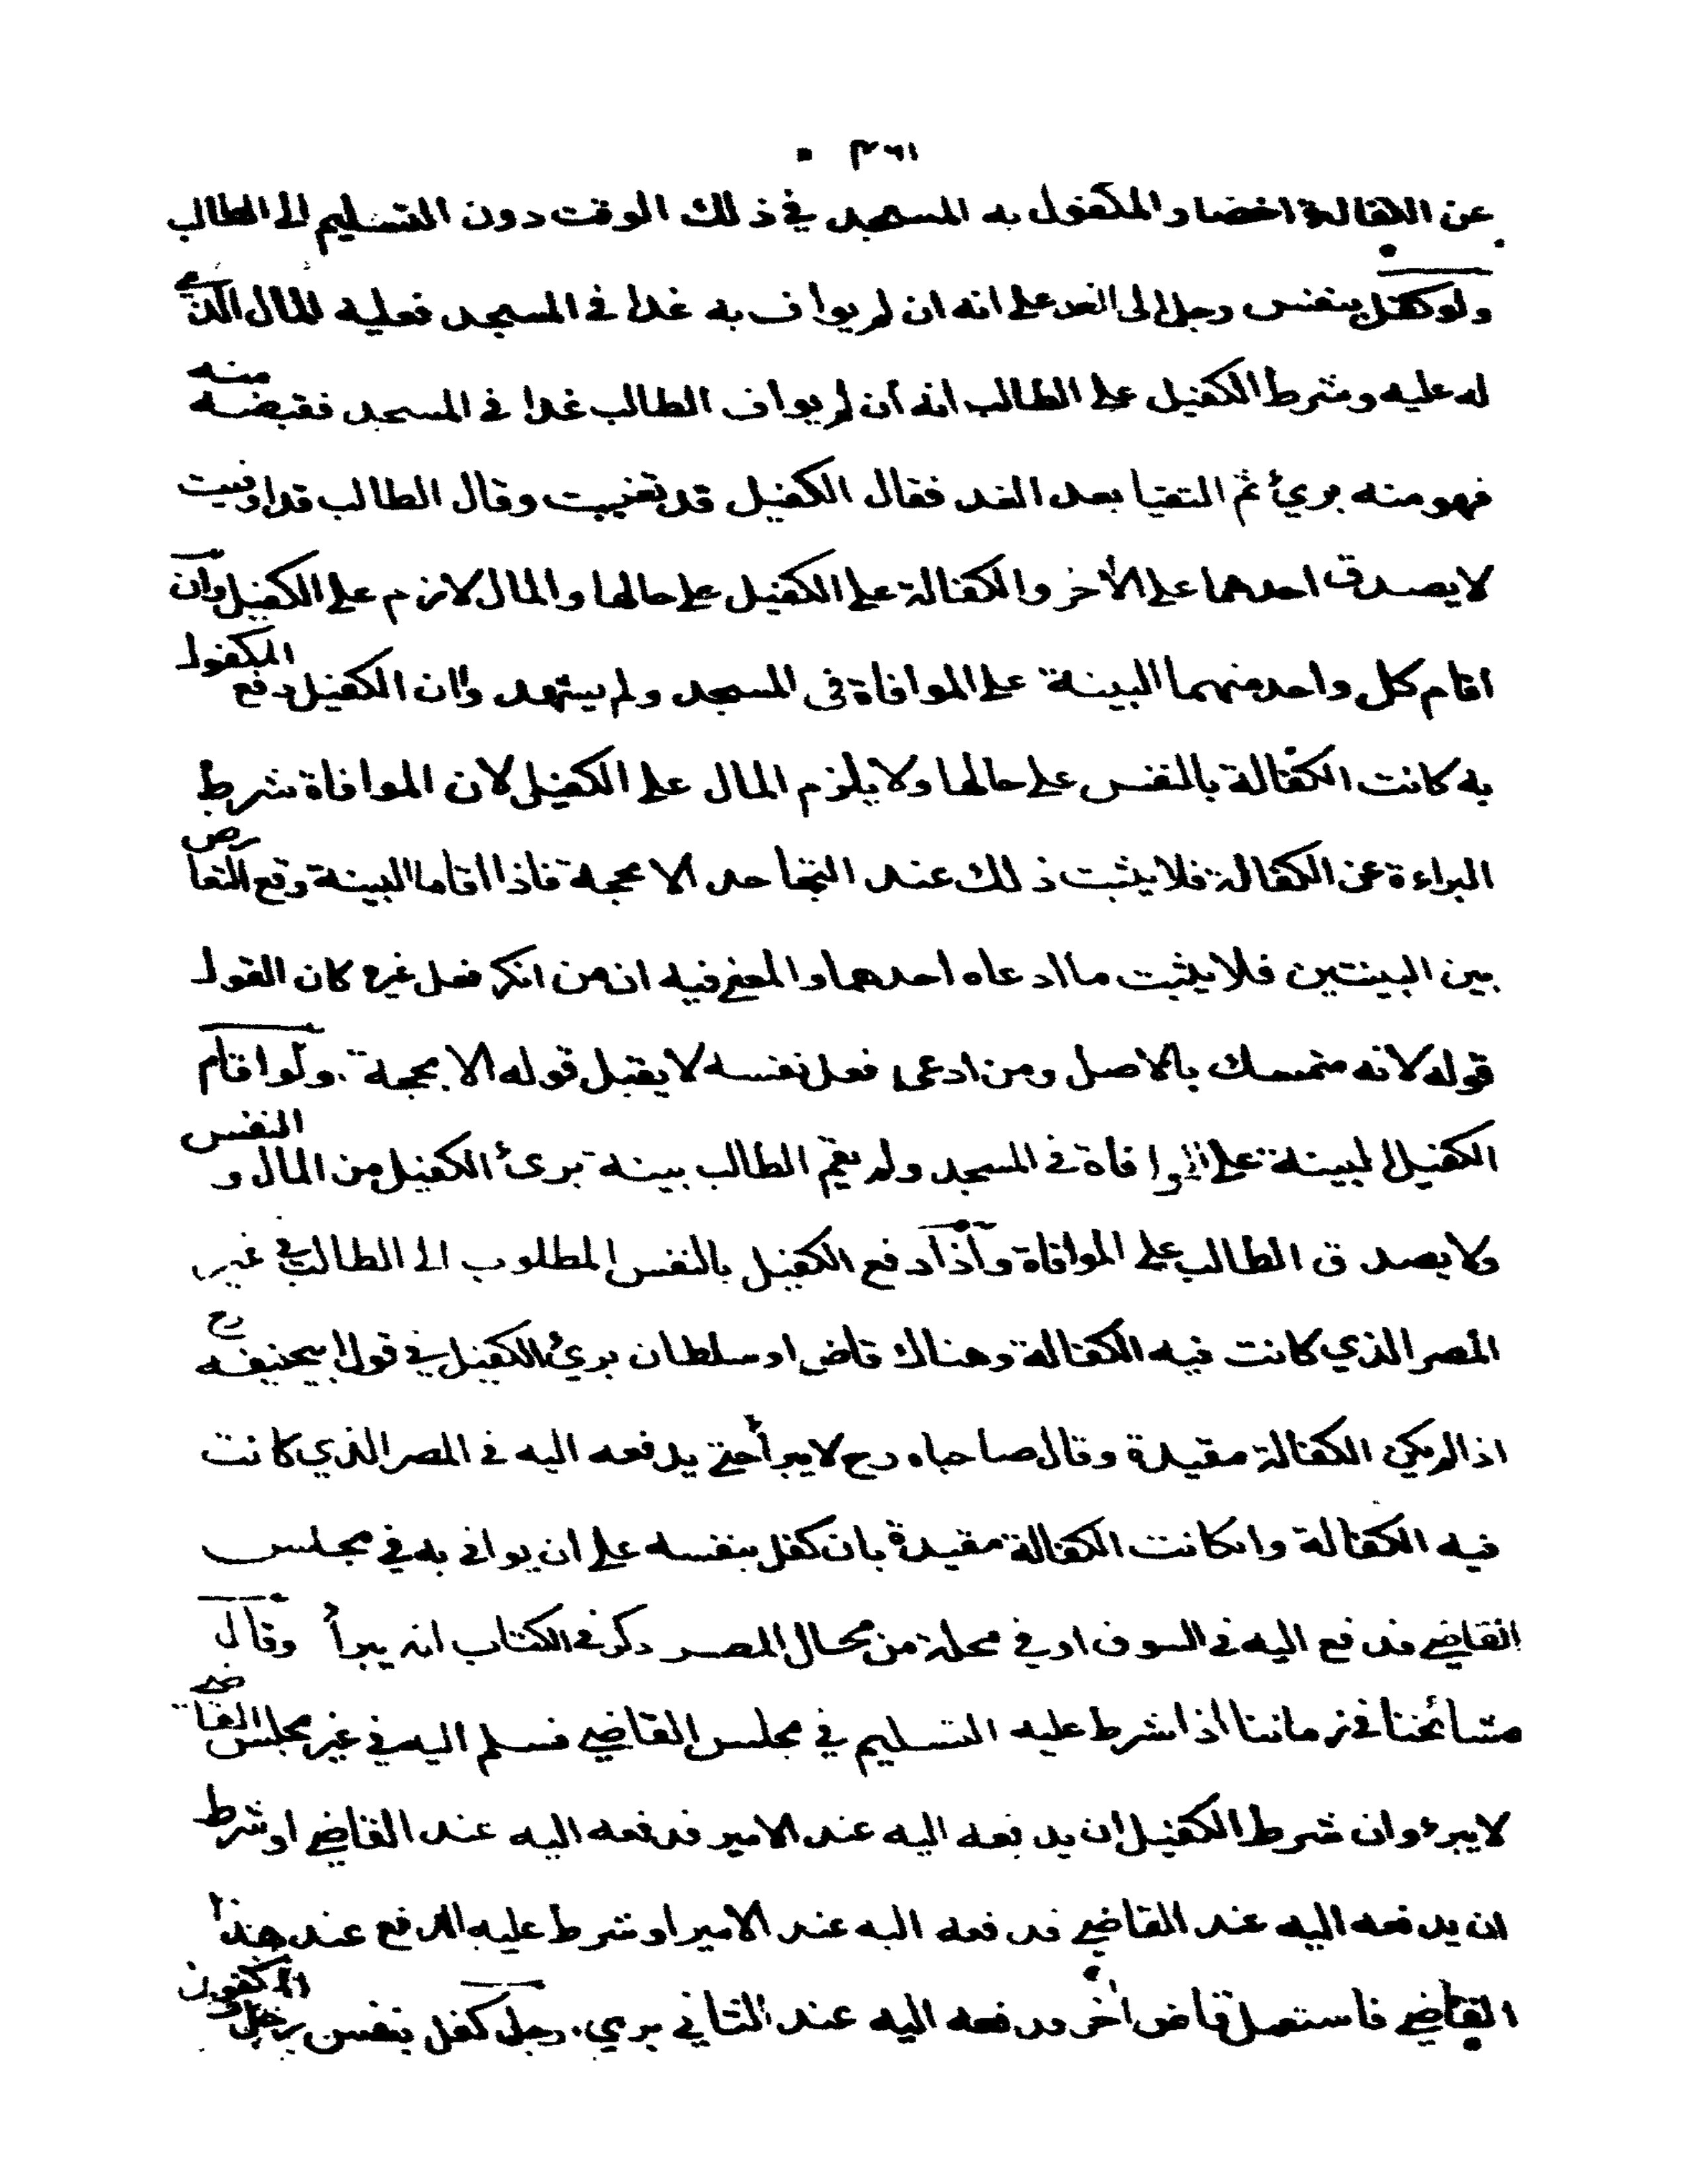 ٣٦١
عن الكفالة احضار المكفول به المسجد في ذلك الوقت دون التسليم الى الطالب
ولو كفل بنفس رجل الى الغد على انه ان لم يواف به غدا في المسجد فعليه المال الذي
له عليه وشرط الكفيل على الطالب انه ان لم يواف الطالب غدا في المسجد فقبضه منه
فهو منه بريئ ثم التقيا بعد الغد فقال الكفيل قد تغيبت وقال الطالب قد اوفيت
لا يصدق احدهما على الأخر والكفالة على الكفيل على حالها والمال لازم على الكفيل وان
اقام كل واحد منهما البينة على الموافاة في المسجد ولم يشهد وان الكفيل دفع المكفول
به كانت الكفالة بالنفس على حالها ولا يلزم المال على الكفيل لان الموافاة شرط
البراءة عن الكفالة فلا يثبت ذلك عند التجاحد الا بحجة فاذا اقاما البينة وقع التعارض
بين البينتين فلا يثبت ما ادعاه احدهما والمعنى فيه ان من انكر فعل غيره كان القول
قوله لانه متمسك بالاصل ومن ادعى فعل نفسه لا يقبل قوله الا بحجة ولو اقام
الكفيل البينة على الموافاة في المسجد ولم يقم الطالب بينة برئ الكفيل من المال والنفس
ولا يصدق الطالب على الموافاة واذا دفع الكفيل بالنفس المطلوب الى الطالب في غير
المصر الذي كانت فيه الكفالة وهناك قاض او سلطان بريئ الكفيل في قول ابيحنيفه رح
اذا لم يكن الكفالة مقيدة وقال صاحباه رح لا يبرأ حتى يدفعه اليه في المصر الذي كانت
فيه الكفالة وانكانت الكفالة مقيدة بان كفل بنفسه على ان يوافى به في مجلس
القاضي فدفع اليه في السوق او في محلة من محال المصر ذكر في الكتاب انه يبرأ وقال
مشائخنا في زماننا اذا شرط عليه التسليم في مجلس القاضي فسلم اليه في غير مجلس القاضي
لا يبرء وان شرط الكفيل ان يدفعه اليه عند الامير فدفعه اليه عند القاضي او شرط
ان يدفعه اليه عند القاضي فدفعه اليه عند الامير او شرط عليه الدفع عند هذا
القاضي فاستعمل قاض أخر فدفعه اليه عند الثاني بري. رجل كفل بنفس رجل